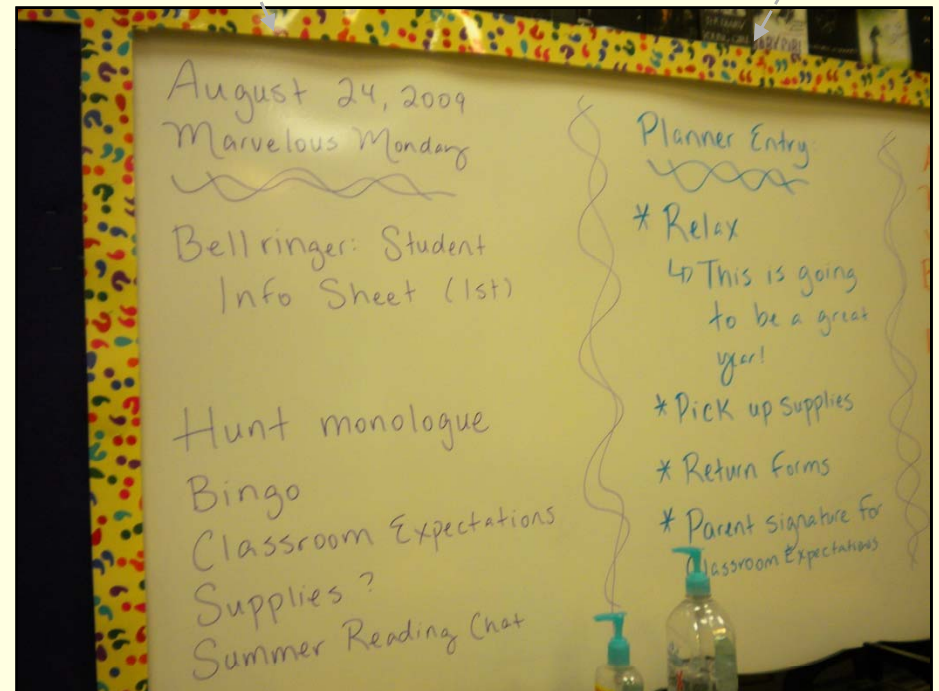 August 24, 2009
Marvelous Monday
Bellringer: Student
Info Sheet (1st)
Hunt monologue
Bingo
Classroom Expectations
Supplies?
Summer Reading Chat
Planner Entry:
* Relax
↳ This is going
to be a great
year!
* Pick up supplies
* Return forms
* Parent signature for
Classroom Expectations